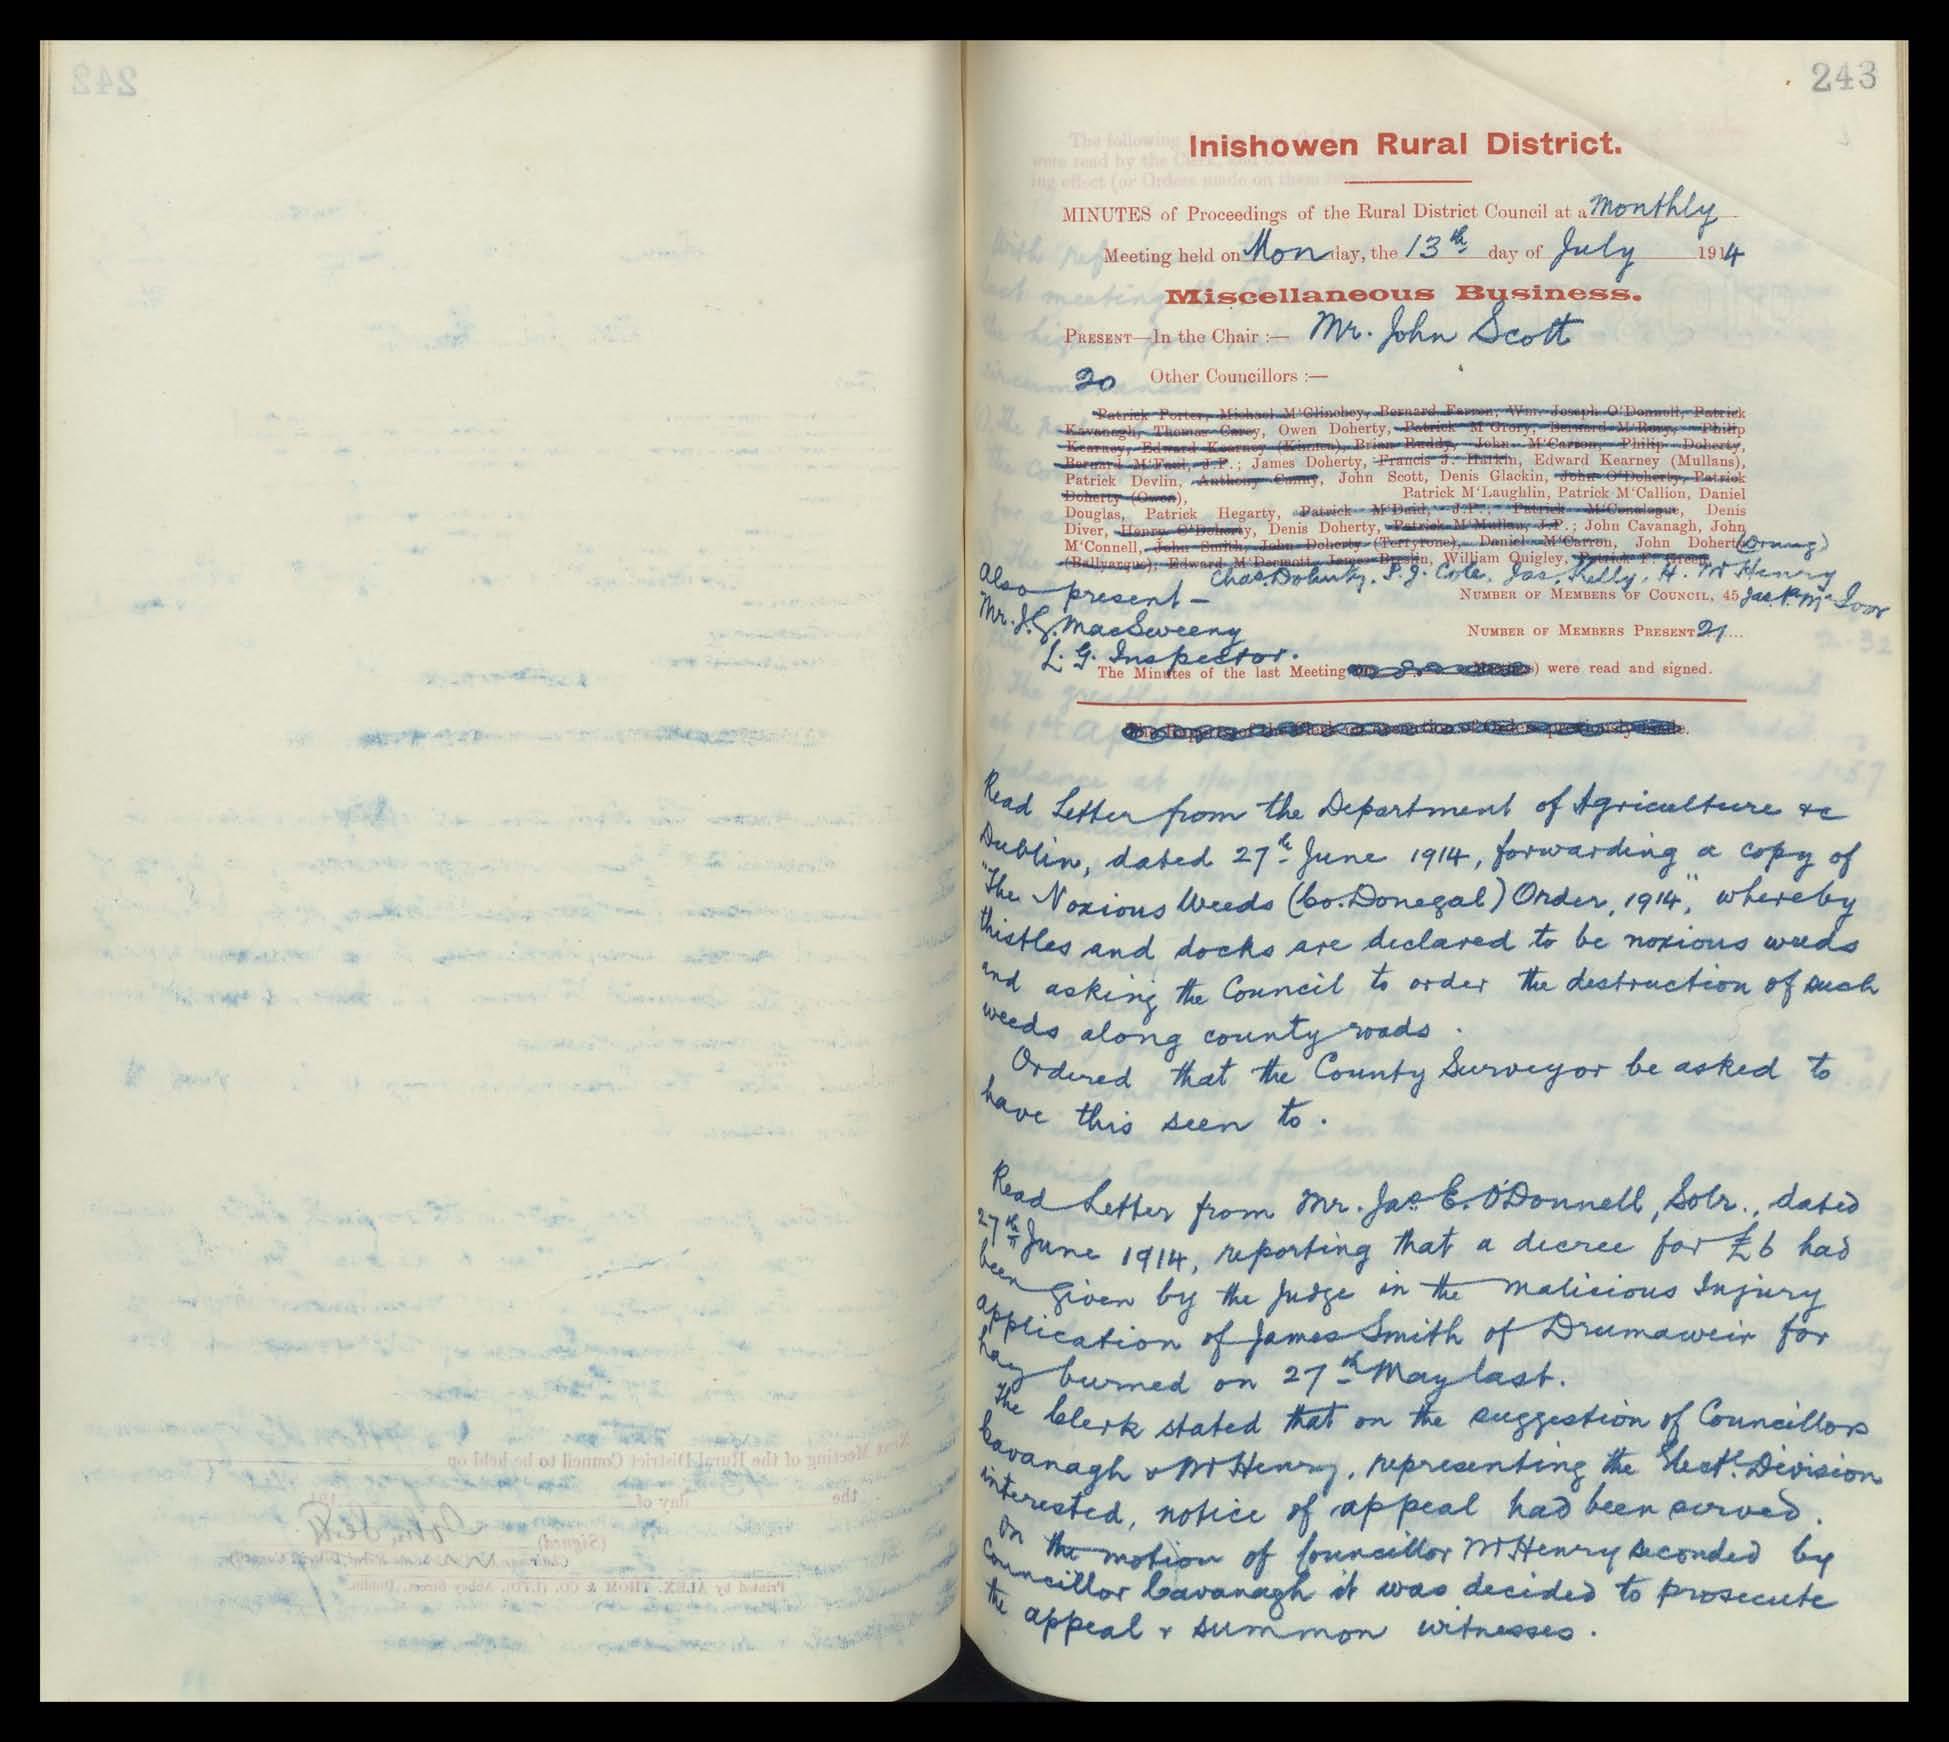 242
243
Inishowen Rural District.
MINUTES of Proceedings of the Rural District Council at a Monthly
Meeting held on Monday, the 13th day of July 1914
Miscellaneous Business.
PRESENT—In the Chair :— Mr. John Scott
20 Other Councillors :—
Patrick Porter, Michael M'Glinchey, Bernard Farren, Wm. Joseph O'Donnell, Patrick
Kavanagh, Thomas Carey, Owen Doherty, Patrick M'Grory, Bernard M'Rory, Philip
Kearney, Edward Kearney (Kinnea), Brian Ruddy, John M'Carron, Philip Doherty,
Bernard M'Faul, J.P.; James Doherty, Francis J. Harkin, Edward Kearney (Mullans),
Patrick Devlin, Anthony Canny, John Scott, Denis Glackin, John O'Doherty, Patrick
Doherty (Owen), Patrick M'Laughlin, Patrick M'Callion, Daniel
Douglas, Patrick Hegarty, Patrick M'Daid, J.P.; Patrick M'Conalogue, Denis
Diver, Henry O'Doherty, Denis Doherty, Patrick M'Mullan, J.P.; John Cavanagh, John
M'Connell, John Smith, John Doherty (Terryrone), Daniel M'Carron, John Doherty (Drung)
(Ballyargus), Edward M'Dermott, James Breslin, William Quigley, Patrick F. Green
Chas. Doherty, P.J. Cole, Jas. Kelly, H. McHenry
Also present — NUMBER OF MEMBERS OF COUNCIL, 45 Jas. P. McIvor
Mr. J.G. MacSweeny NUMBER OF MEMBERS PRESENT 21
L. G. Inspector.
The Minutes of the last Meeting were read and signed.
Read Letter from the Department of Agriculture &c
Dublin, dated 27th June 1914, forwarding a copy of
"The Noxious Weeds (Co. Donegal) Order, 1914", whereby
thistles and docks are declared to be noxious weeds
and asking the Council to order the destruction of such
weeds along county roads.
Ordered that the County Surveyor be asked to
have this seen to.
Read Letter from Mr. Jas. E. O'Donnell, Solr., dated
27th June 1914, reporting that a decree for £6 had
been given by the Judge in the Malicious Injury
application of James Smith of Drumaweir for
hay burned on 27th May last.
The Clerk stated that on the suggestion of Councillors
Cavanagh & McHenry, representing the Electl. Division
interested, notice of appeal had been served.
On the motion of Councillor McHenry seconded by
Councillor Cavanagh it was decided to prosecute
the appeal & summon witnesses.